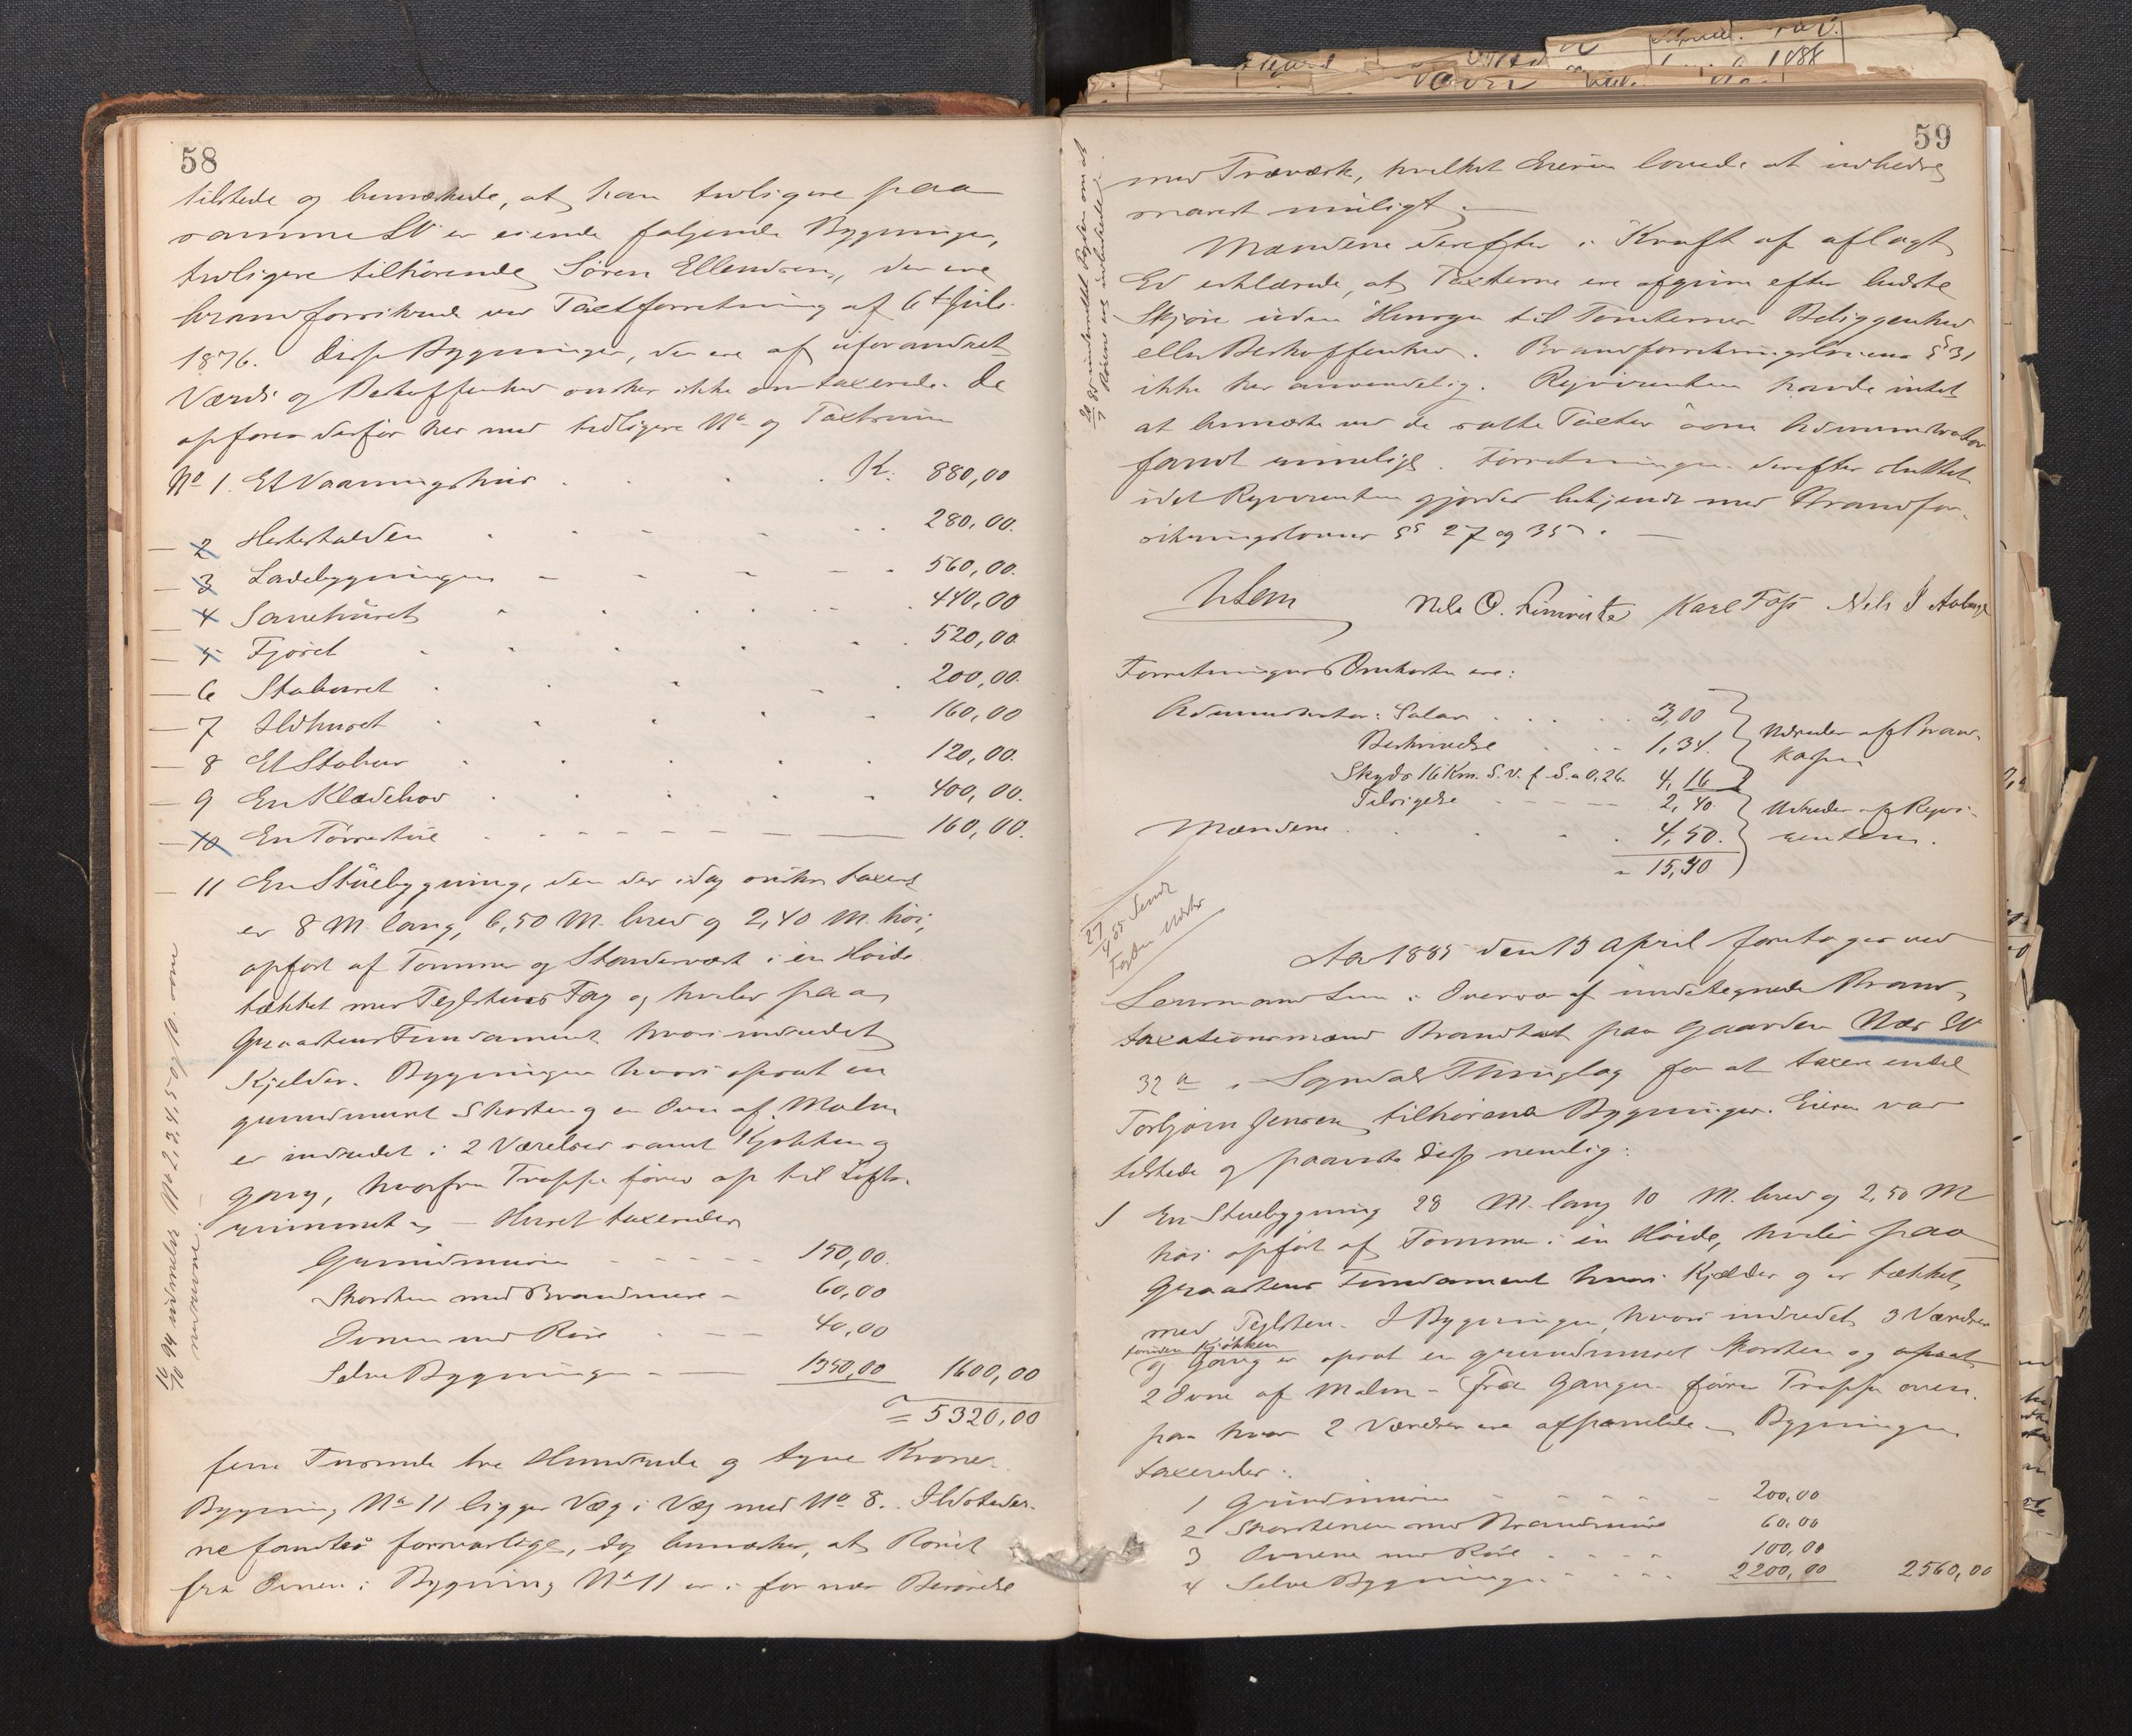 58
tilstede og bemærkede, at han tidligere paa
samme LN er eiende følgende Bygninger,
tidligere tilhørende Søren Ellendsen, der ere
brandforsikrede ved Taxtforretning af 6te Juli
1876. Disse Bygninger, der ere af uforandret
Værdi og Beskaffenhed ønskes ikke omtaxerede. De
opføres derfor her med tidligere No og Taxtsum
No 1. Et Vaaningshus K. 880,00
- 2 Hestestalden 280,00.
- 3 Ladebygningen 560,00.
- 4 Sauehuset 440,00
- 5 Fjøset 520,00
- 6 Staburet 200,00.
- 7 Ildhuset 160,00
- 8 Et Stabur 120,00.
- 9 En Klædebod 400,00.
- 10 En Tørrestue 160,00.
- 11 En Stuebygning, den der idag ønskes taxeret
er 8 M. lang, 6,50 M. bred og 2,40 M. høi,
opført af Tømmer og Standerværk i en Høide
tækket med Teglstens Tag og hviler paa
Graastens Fundament hvori indredet
Kjelder. Bygningen hvori opsat en
grundmuret Skorsten og en Ovn af Malm
er indredet i 2 Værelser samt Kjøkken og
Gang, hvorfra Trappe fører op til Lofts-
rummet. - Huset taxeredes
Grundmuren 150,00.
Skorsten med Brandmure 60,00
Ovnen med Rør 40,00
Selve Bygningen 1350,00 1600,00
= 5320,00
fem Tusinde tre Hundrede og tyve Kroner.
Bygning No 11 ligger Væg i Væg med No 8. Ildstederne
fandtes forsvarlige, dog bemærkes, at Røret
fra Ovnen i Bygning No 11 er i for nær Berørelse
16/10 94 udmeldes No 2, 3, 4, 5 og 10. som
nedrevne.
59
med Træværk, hvilket Eieren lovede at udbedre
snarest muligt.
Mændene derefter i Kraft af aflagt
Ed erklærede, at Taxterne ere afgivne efter bedste
Skjøn uden Hensyn til Tomternes Beliggenhed
eller Beskaffenhed. Brandforsikringslovens § 31
ikke her anvendelig. Rekvirenten havde intet
at bemærke ved de satte Taxter som Administrator
fandt rimelige. Forretningen derefter sluttet
idet Rekvirenten gjordes bekjendt med Brandfor-
sikringslovens §§ 27 og 35.
Karl Foss Nils J
Forretningens Omkostn. ere:
Administrator: Salær 3,00
Beskrivelse 1,34
Skyds 16 Km. 4,16
Udredes af Brand-
kassen
Tilsigelse 2,40
Mændene 4,50.
Udredes af Rekvi-
renten.
15,40
27/4 85 sendt
Aar 1885 den 13 April foretoges ved
Lensmand Lem i Overvær af undertegnede Brand-
taxationsmænd Brandtaxt paa Gaarden Nes LN
32 a i Sogndals Thinglag for at taxere endel
Torbjørn Jensen tilhørende Bygninger. Eieren var
tilstede og paaviste disse nemlig:
1 En Stuebygning 28 M. lang 10 M. bred og 2,50 M
høi opført af Tømmer i en Høide, hviler paa
Graastens Fundament hvori Kjælder og er tækket
med Teglsten. I Bygningen, hvori indredet 3 Værelser
foruden Kjøkken
og Gang er opsat en grundmuret Skorsten og opsat
2 Ovne af Malm - Fra Gangen fører Trappe oven-
paa hvor 2 Værelser ere afpanelede. Bygningen
taxeredes:
1 Grundmuren 200,00
2 Skorstenen med Brandmure 60,00
3 Ovnene med Rør 100,00
4 Selve Bygningen 2200,00 2560,00